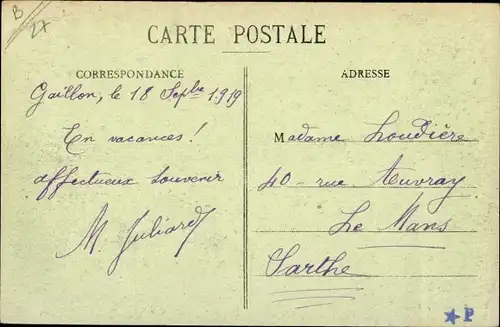 B
27
CARTE POSTALE
CORRESPONDANCE
Gaillon, le 18 Sepbre 1919
En vacances!
affectueux souvenir
M Juliard
ADRESSE
Madame Loudière
40 - rue Auvray
Le Mans
Sarthe
★P